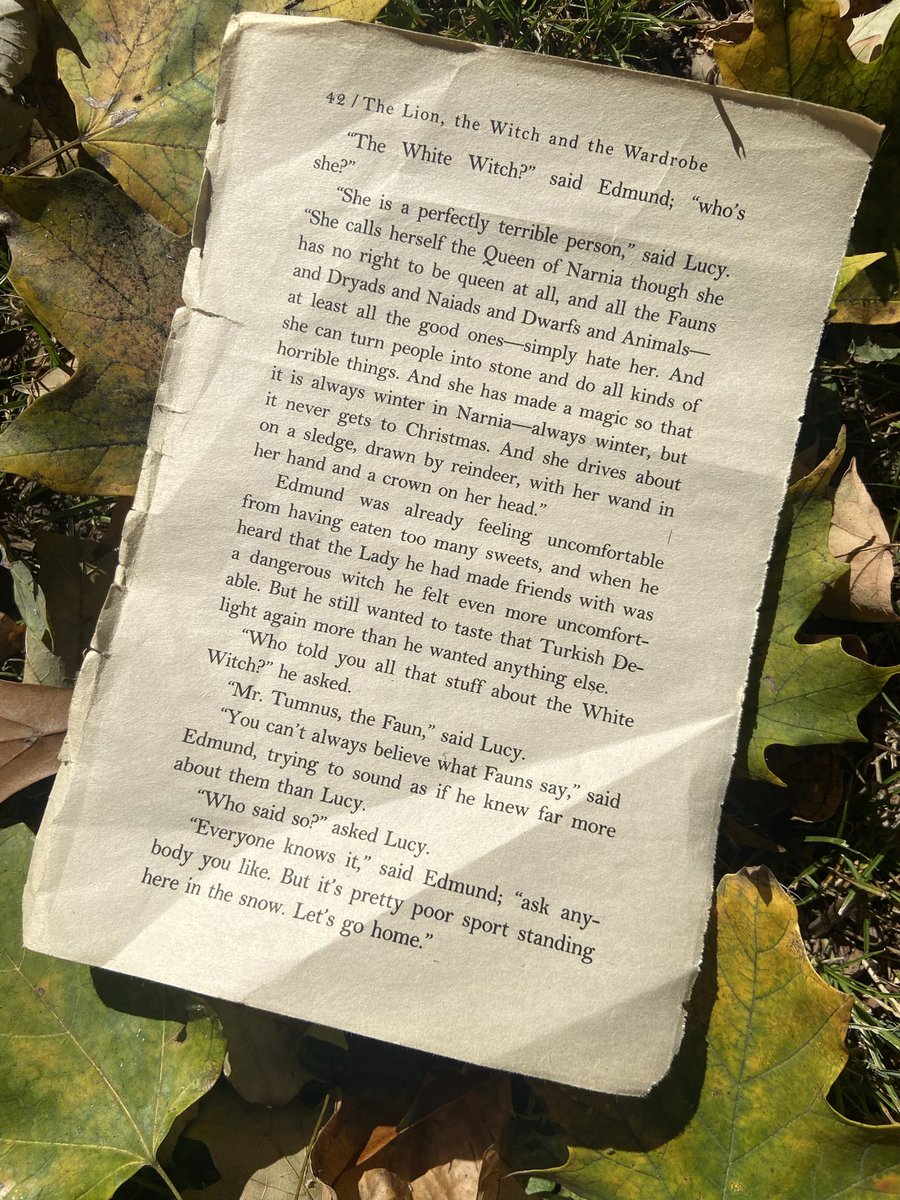 42 / The Lion, the Witch and the Wardrobe
“The White Witch?” said Edmund; “who’s
she?”
“She is a perfectly terrible person,” said Lucy.
“She calls herself the Queen of Narnia though she
has no right to be queen at all, and all the Fauns
and Dryads and Naiads and Dwarfs and Animals—
at least all the good ones—simply hate her. And
she can turn people into stone and do all kinds of
horrible things. And she has made a magic so that
it is always winter in Narnia—always winter, but
it never gets to Christmas. And she drives about
on a sledge, drawn by reindeer, with her wand in
her hand and a crown on her head.”
Edmund was already feeling uncomfortable
from having eaten too many sweets, and when he
heard that the Lady he had made friends with was
a dangerous witch he felt even more uncomfort-
able. But he still wanted to taste that Turkish De-
light again more than he wanted anything else.
“Who told you all that stuff about the White
Witch?” he asked.
“Mr. Tumnus, the Faun,” said Lucy.
“You can’t always believe what Fauns say,” said
Edmund, trying to sound as if he knew far more
about them than Lucy.
“Who said so?” asked Lucy.
“Everyone knows it,” said Edmund; “ask any-
body you like. But it’s pretty poor sport standing
here in the snow. Let’s go home.”